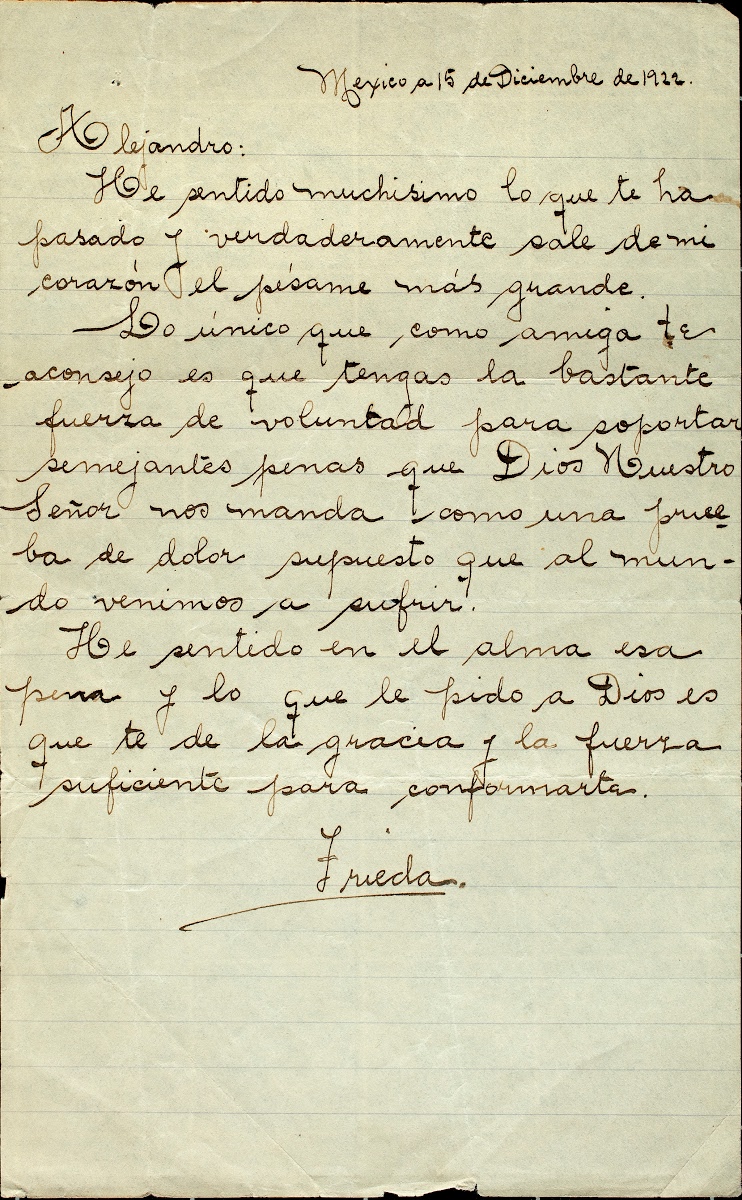 Mexico a 15 de Diciembre de 1922.
Alejandro:
He sentido muchisimo lo que te ha
pasado y verdaderamente sale de mi
corazón el pésame más grande.
Lo único que como amiga te
aconsejo es que tengas la bastante
fuerza de voluntad para soportar
semejantes penas que Dios Nuestro
Señor nos manda como una prue-
ba de dolor supuesto que al mun-
do venimos a sufrir.
He sentido en el alma esa
pena y lo que le pido a Dios es
que te de la gracia y la fuerza
suficiente para conformarte.
Frieda.